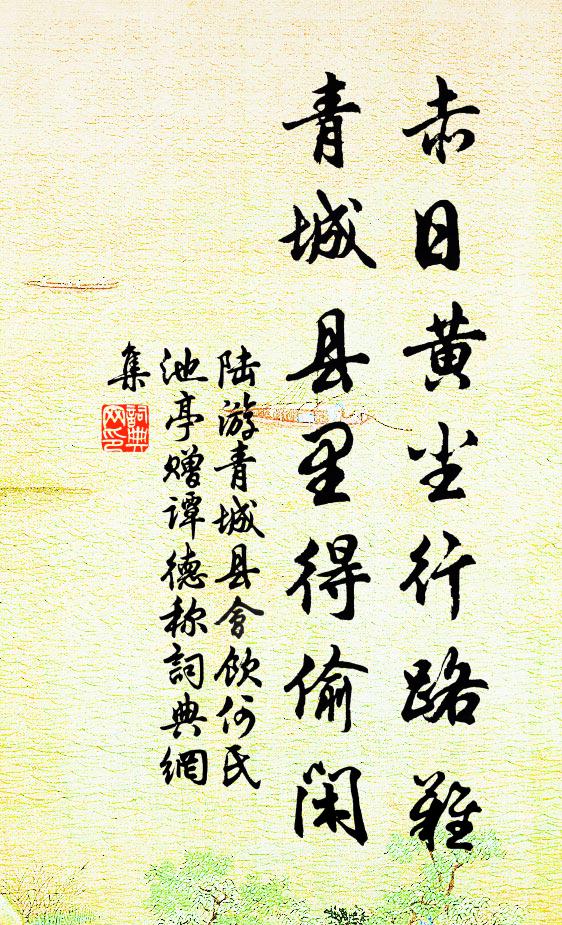 赤日黄尘行路难
青城县里得偷闲
陆游青城县会饮何氏
池亭赠谭德称词典網
集
詞典
网印